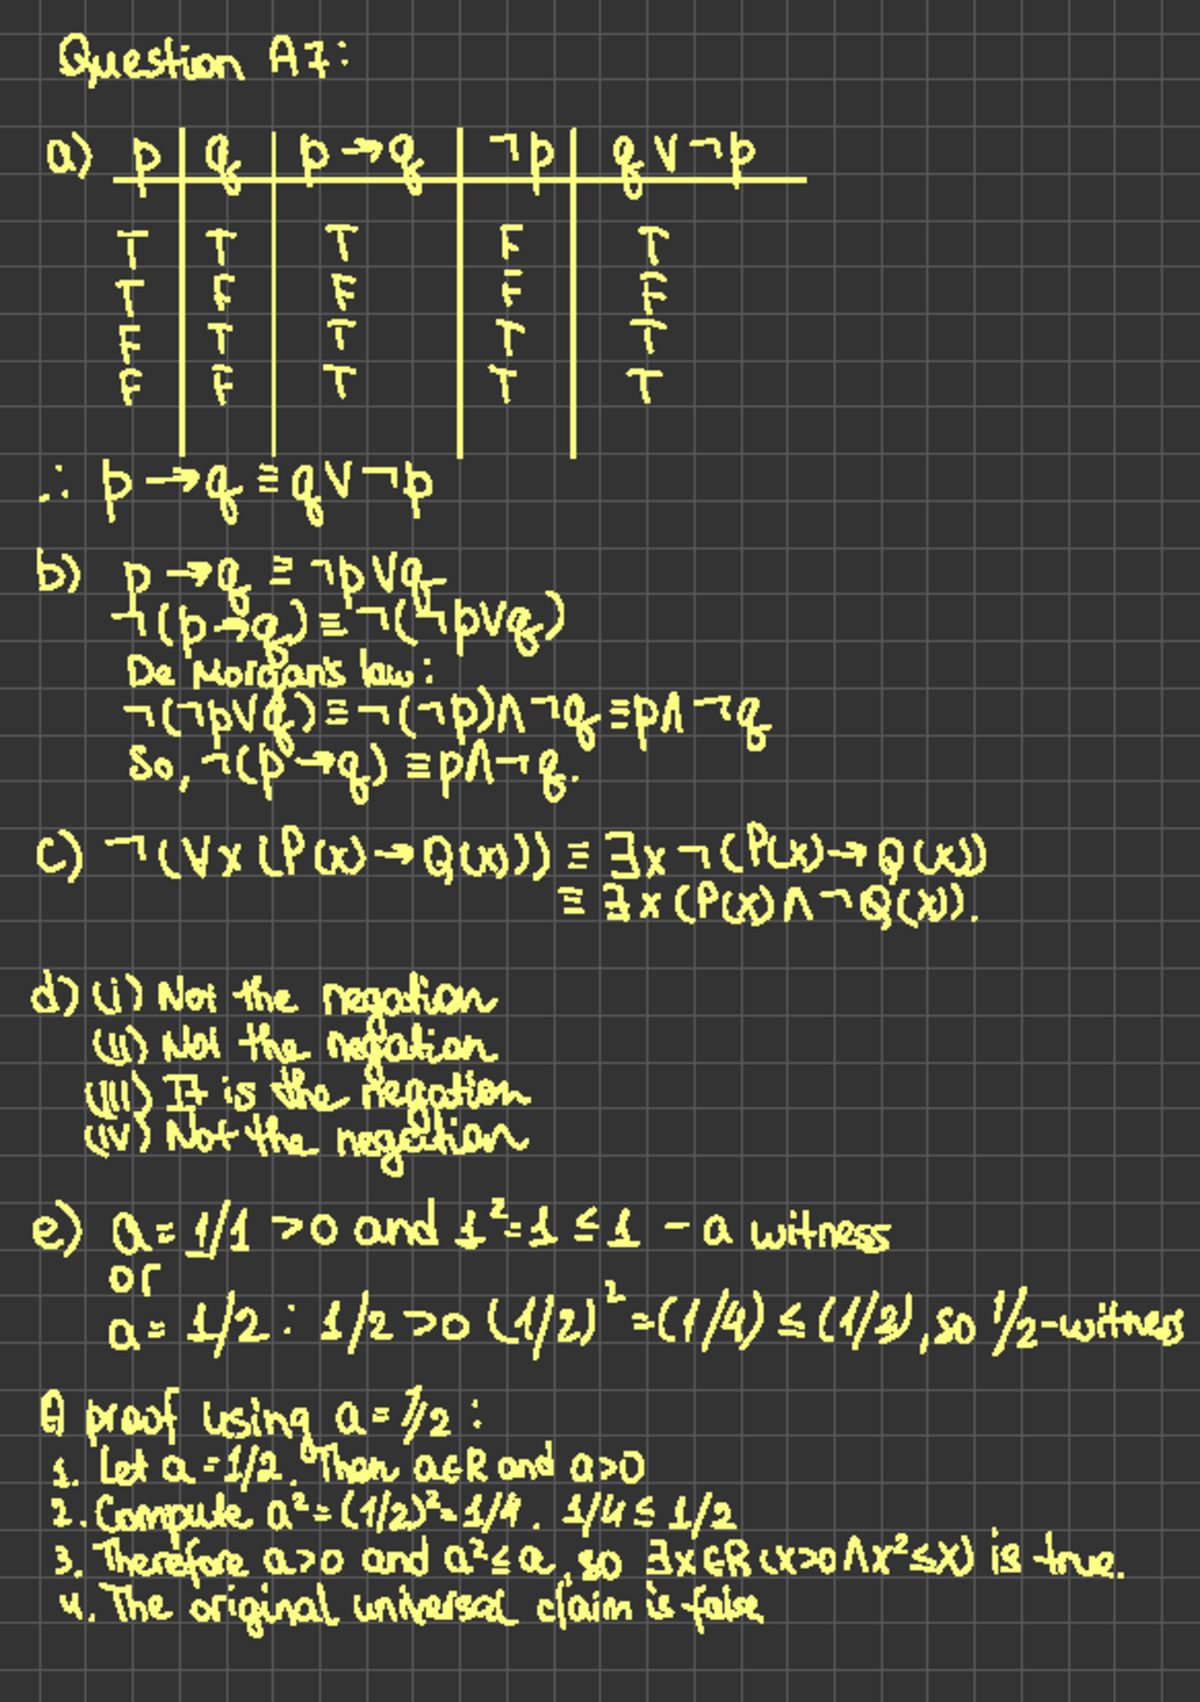 Question A7:
a) p | q | p → q | ¬p | q ∨ ¬p
T T T F T
T F F F F
F T T T T
F F T T T
∴ p → q ≡ q ∨ ¬p
b) p → q ≡ ¬p ∨ q
¬(p → q) ≡ ¬(¬p ∨ q)
De Morgan's law:
¬(¬p ∨ q) ≡ ¬(¬p) ∧ ¬q ≡ p ∧ ¬q
So, ¬(p → q) ≡ p ∧ ¬q.
c) ¬(∀x (P(x) → Q(x))) ≡ ∃x ¬(P(x) → Q(x))
≡ ∃x (P(x) ∧ ¬Q(x)).
d) (i) Not the negation
(ii) Not the negation
(iii) It is the negation
(iv) Not the negation
e) a = 1/1 > 0 and 1² = 1 ≤ 1 - a witness
or
a = 1/2 : 1/2 > 0 (1/2)² = (1/4) ≤ (1/2), so 1/2 - witness
A proof using a = 1/2 :
1. Let a = 1/2. Then a ∈ R and a > 0
2. Compute a² = (1/2)² = 1/4. 1/4 ≤ 1/2
3. Therefore a > 0 and a² ≤ a, so ∃x ∈ R (x > 0 ∧ x² ≤ x) is true.
4. The original universal claim is false